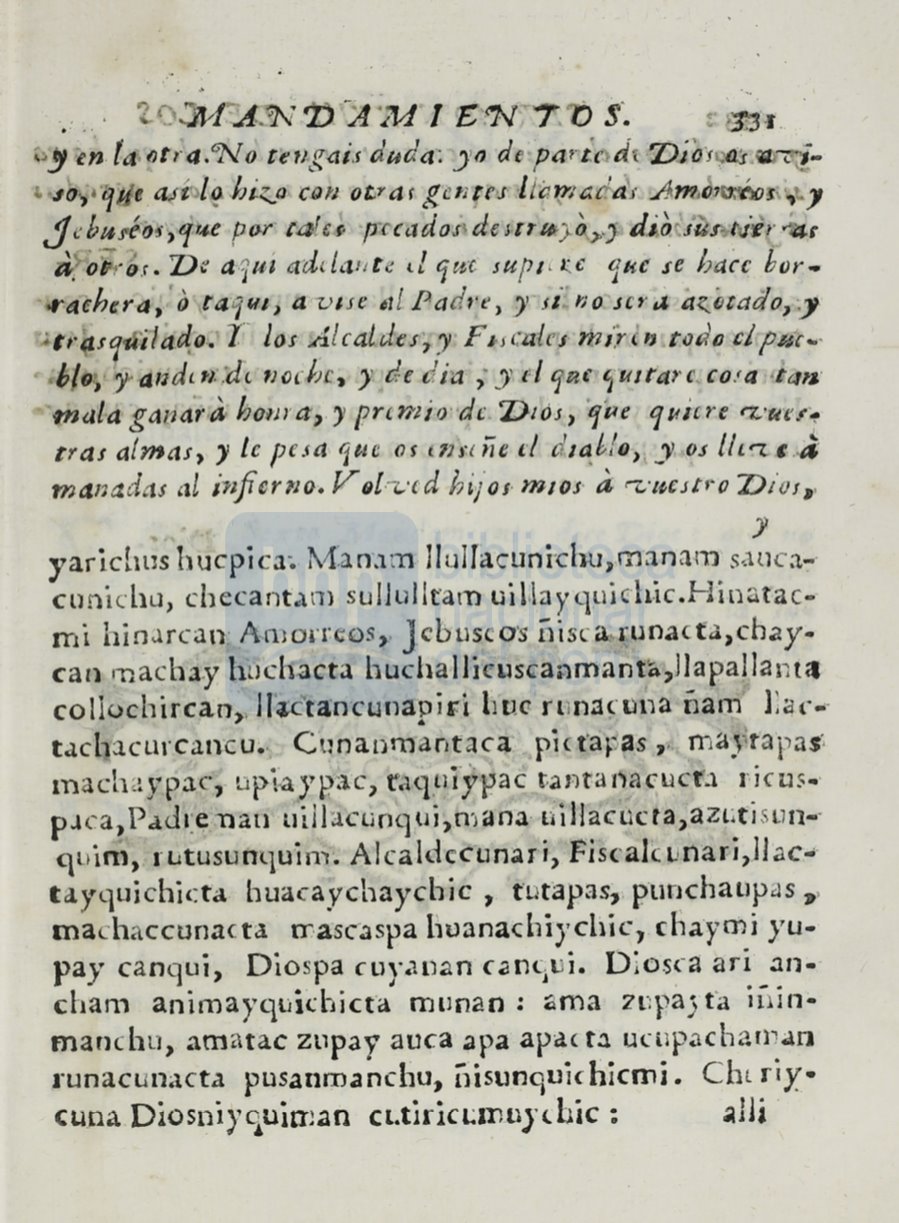 MANDAMIENTOS. 331
y en la otra. No tengais duda: yo de parte de Dios os avi-
so, que asi lo hizo con otras gentes llamadas Amorréos, y
Jebuséos, que por tales pecados destruyò, y diò sus tierras
à otros. De aqui adelante el que supiere que se hace bor-
rachera, ò taqui, avise al Padre, y si no serà azotado, y
trasquilado. Y los Alcaldes, y Fiscales miren todo el pue-
blo, y anden de noche, y de dia, y el que quitare cosa tan
mala ganarà honra, y premio de Dios, que quiere vues-
tras almas, y le pesa que os enseñe el diablo, y os lleve à
manadas al infierno. Volved hijos mios à vuestro Dios,
y
yarichus hucpica. Manam llullacunichu, manam sauca-
cunichu, checantam sullulltam uillayquichic. Hinatac-
mi hinarcan Amorreos, Jebuseos ñisca runacta, chay-
can machay huchacta huchallicuscanmanta, llapallanta
collochircan, llactancunapiri huc runacuna ñam llac-
tachacurcancu. Cunanmantaca pictapas, maytapas
machaypac, upiaypac, taquiypac tantanacucta ricus-
paca, Padreman uillacunqui, mana uillacucta, azutisun-
quim, rutusunquim. Alcaldecunari, Fiscalcunari, llac-
tayquichicta huacaychaychic, tutapas, punchaupas,
machaccunacta mascaspa huanachiychic, chaymi yu-
pay canqui, Diospa cuyanan canqui. Diosca ari an-
cham animayquichicta munan: ama zupayta iñin-
manchu, amatac zupay auca apa apacta ucupachaman
runacunacta pusanmanchu, ñisunquichicmi. Churiy-
cuna Diosniyquiman cutiricumuychic: alli